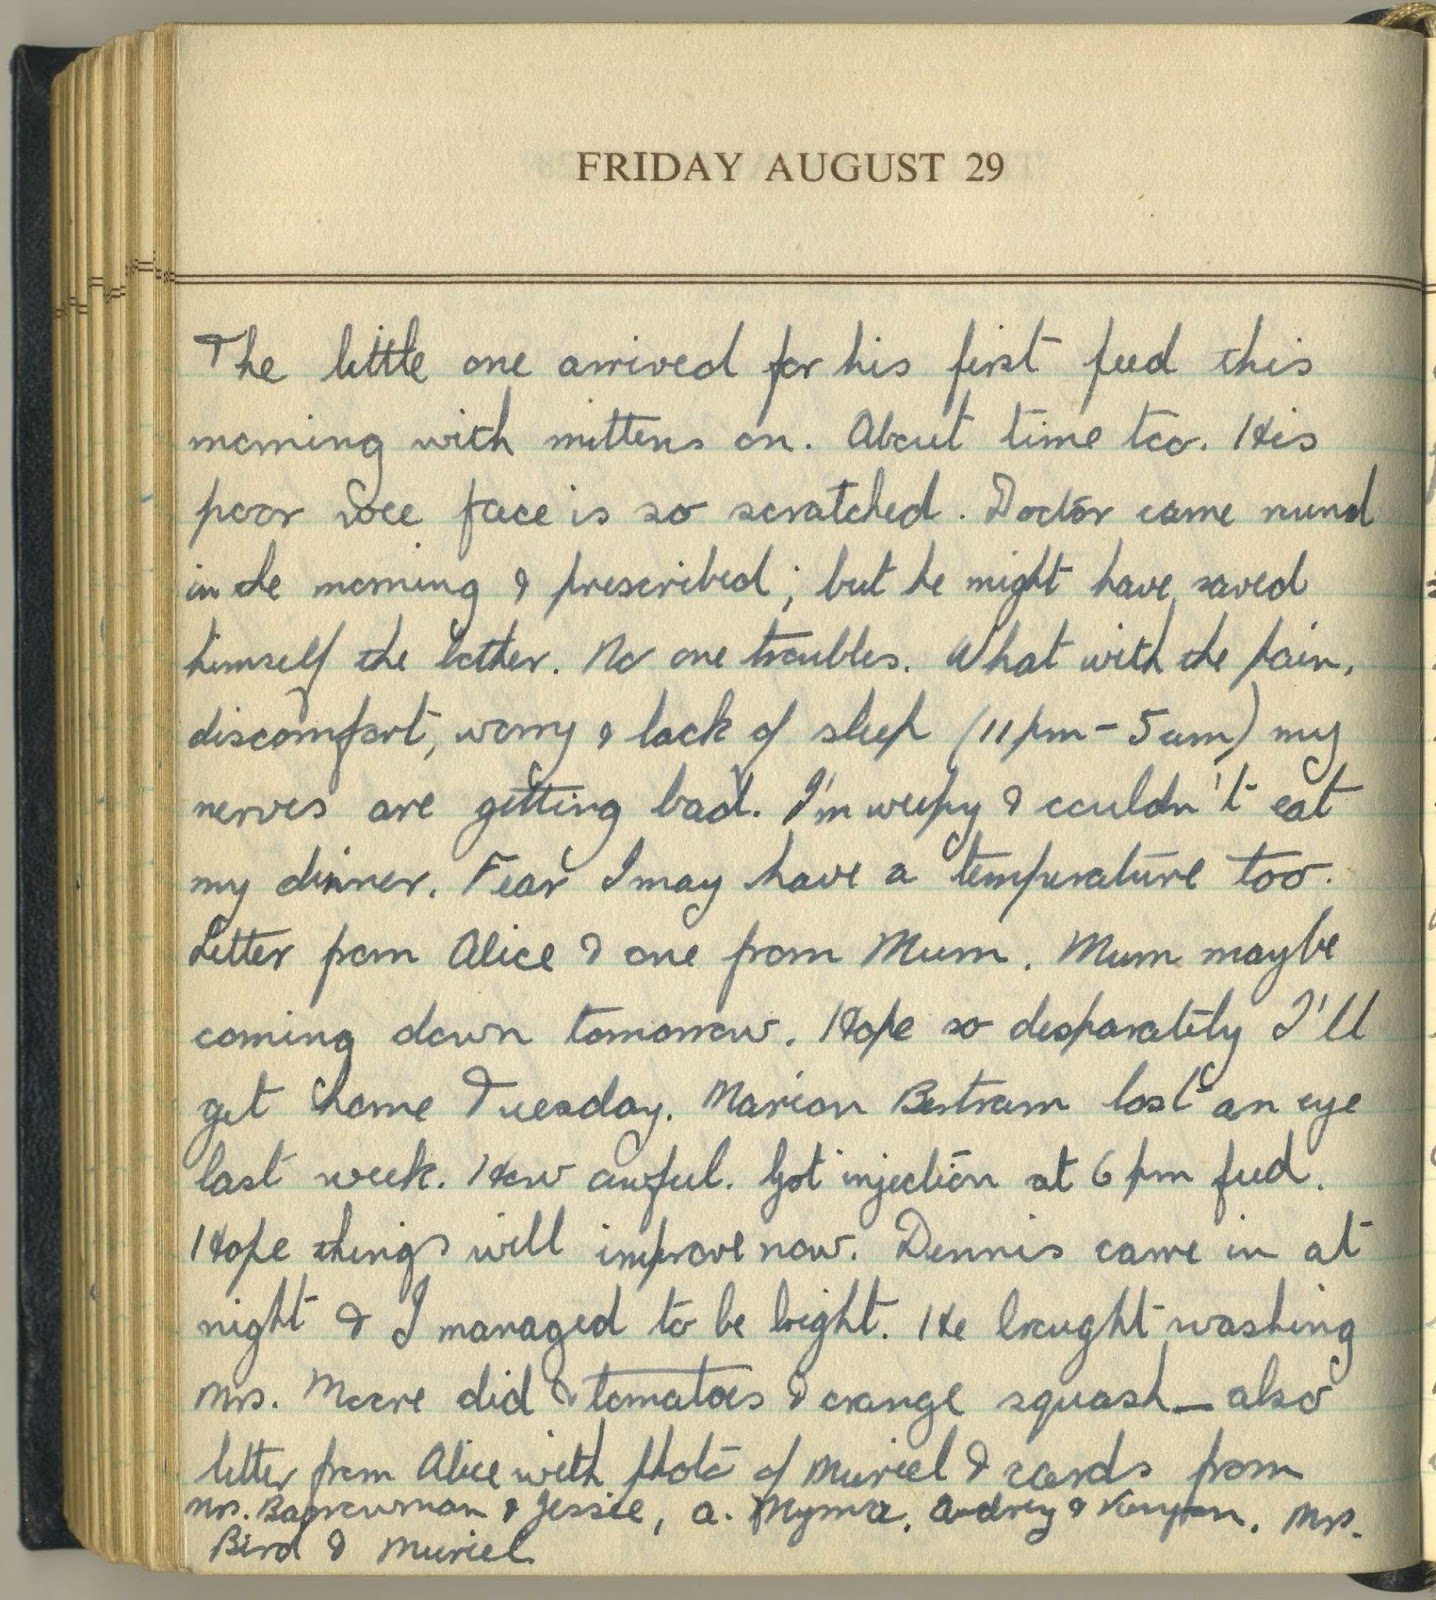 FRIDAY AUGUST 29
The little one arrived for his first feed this
morning with mittens on. About time too. His
poor wee face is so scratched. Doctor came round
in the morning & prescribed; but he might have saved
himself the bother. No one troubles. What with the pain,
discomfort, worry & lack of sleep (11pm - 5am) my
nerves are getting bad. I'm weepy & couldn't eat
my dinner. Fear I may have a temperature too.
Letter from Alice & one from Mum. Mum maybe
coming down tomorrow. Hope so desparately I'll
get home Tuesday. Marion Bertram lost an eye
last week. How awful. Got injection at 6 pm feed.
Hope things will improve now. Dennis came in at
night & I managed to be bright. He brought washing
Mrs. Moore did & tomatoes & orange squash – also
letter from Alice with photo of Muriel & cards from
Mrs. & Jessie, A. Myrna, Audrey & Mrs.
Bird & Muriel